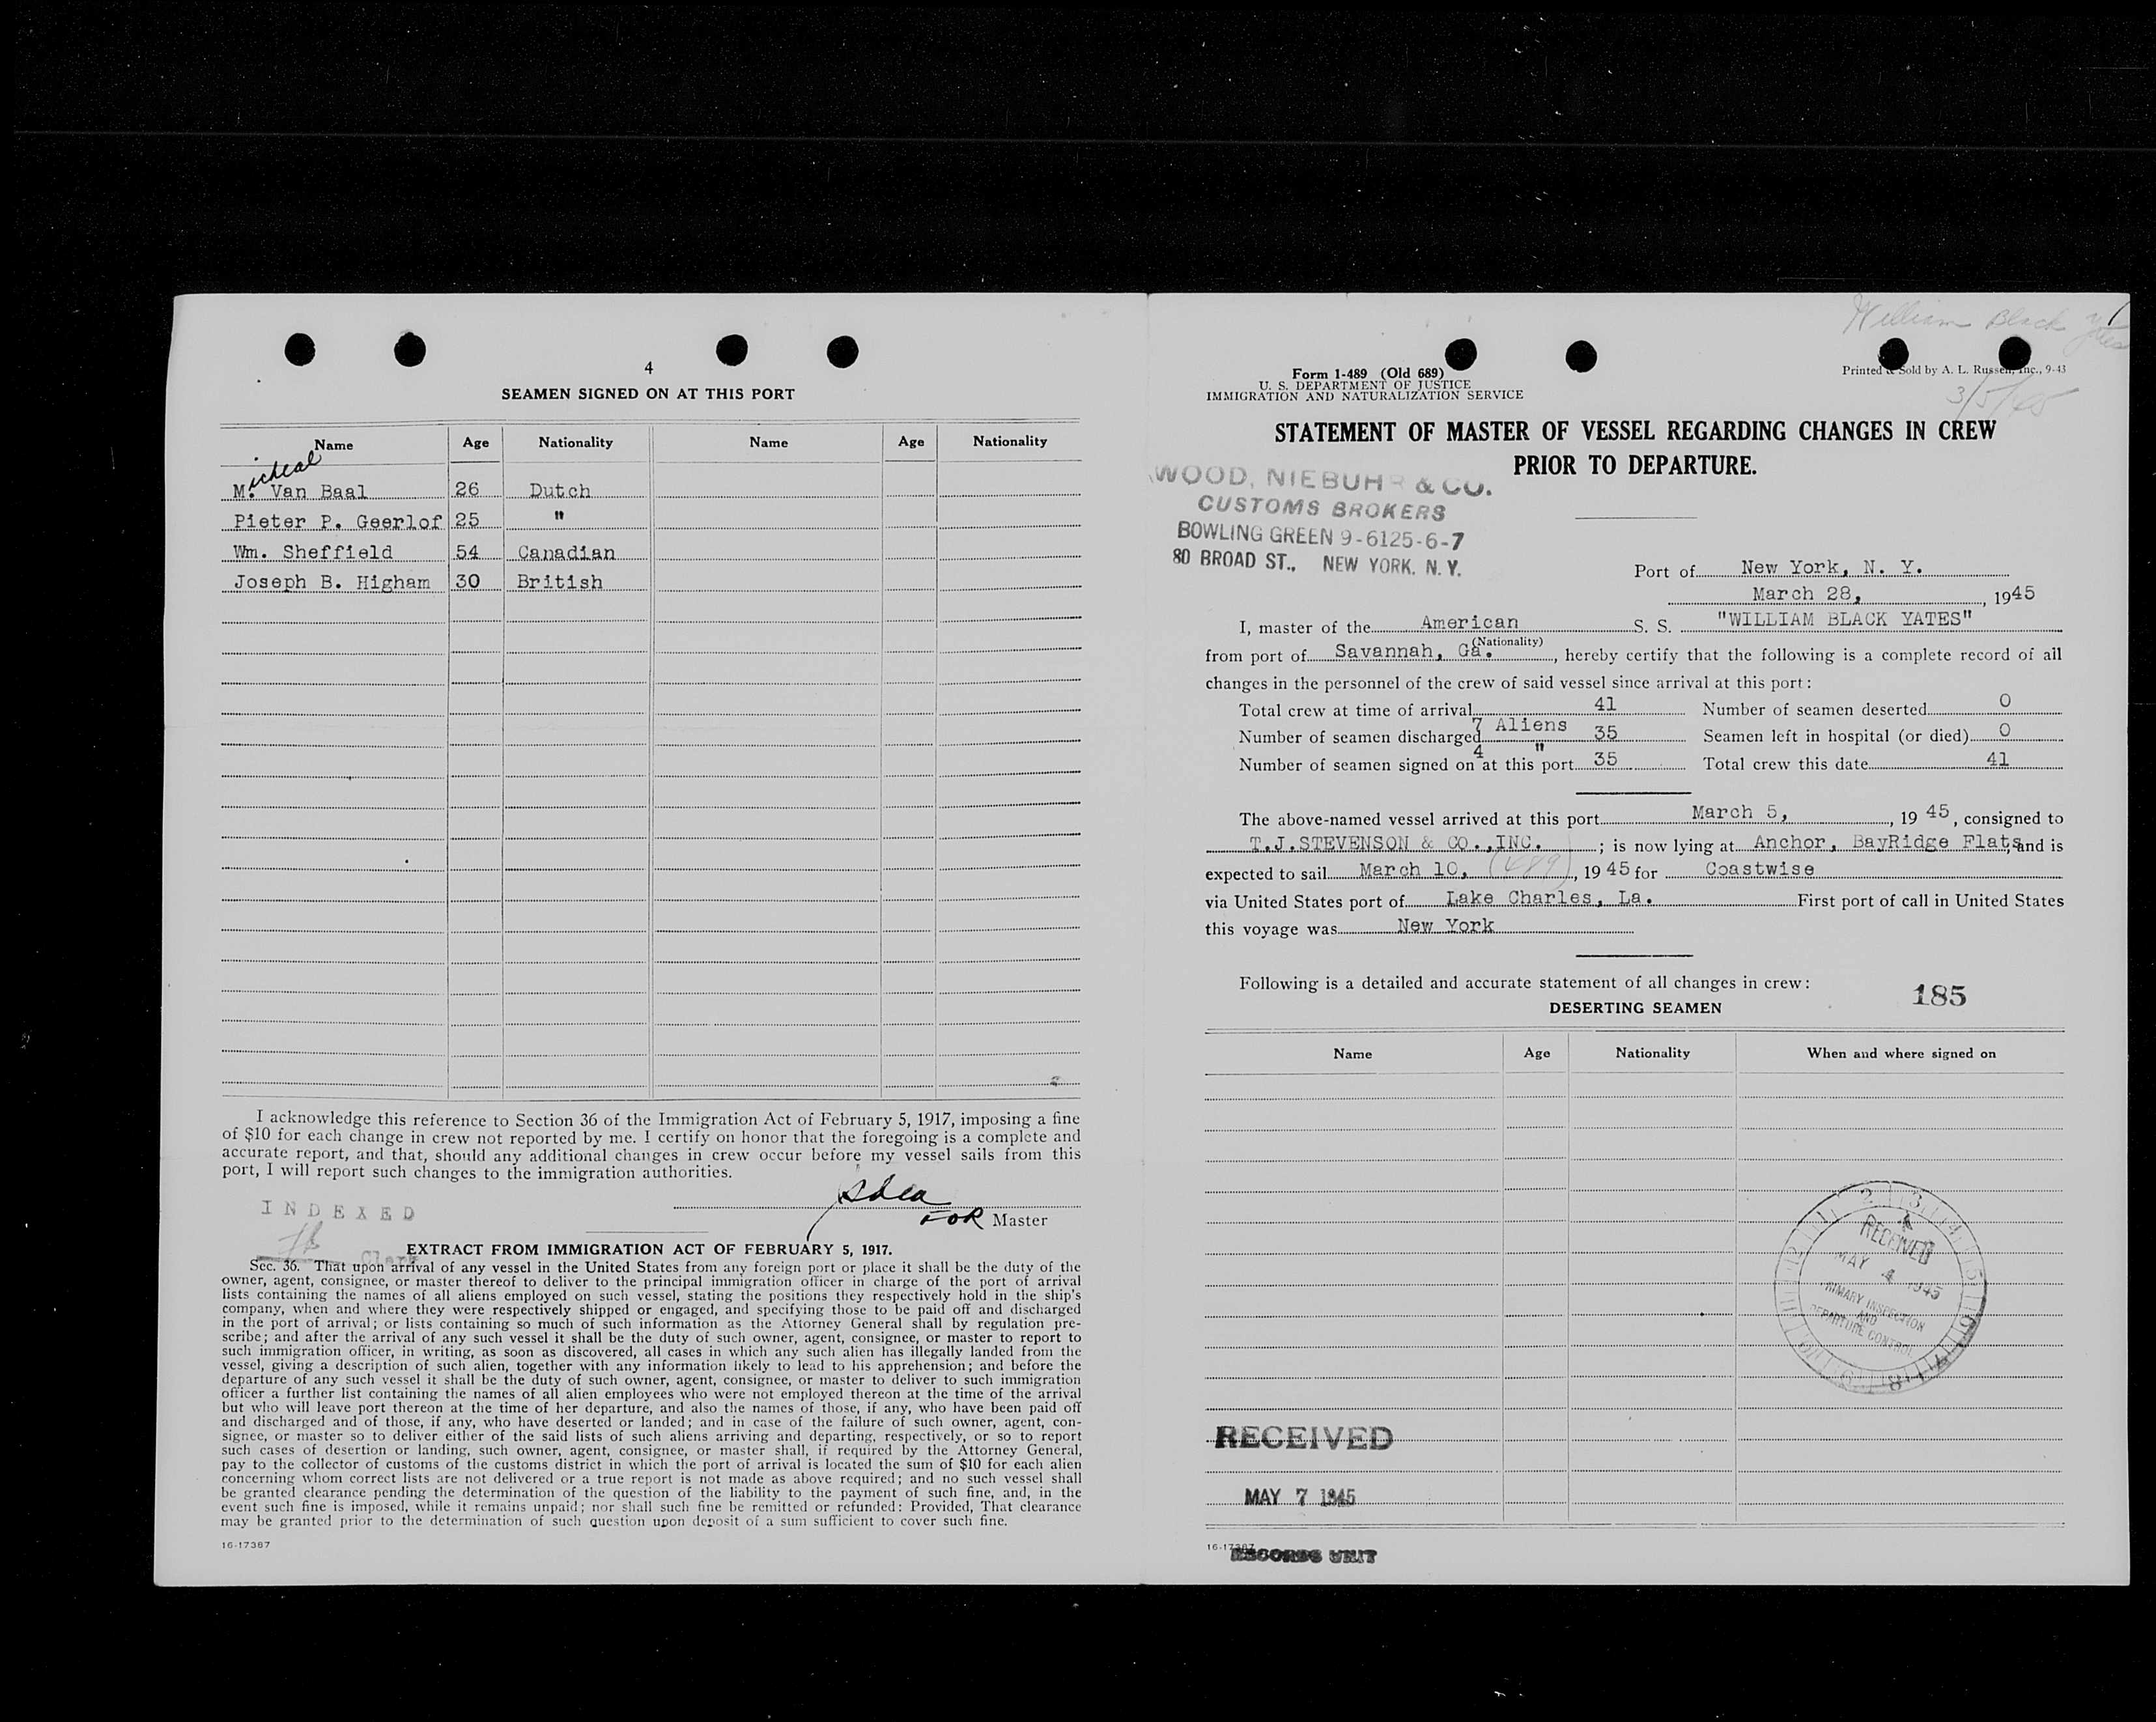 4
SEAMEN SIGNED ON AT THIS PORT
Name Age Nationality Name Age Nationality
icheal
M. Van Baal 26 Dutch
Pieter P. Geerlof 25 "
Wm. Sheffield 54 Canadian
Joseph B. Higham 30 British
I acknowledge this reference to Section 36 of the Immigration Act of February 5, 1917, imposing a fine
of $10 for each change in crew not reported by me. I certify on honor that the foregoing is a complete and
accurate report, and that, should any additional changes in crew occur before my vessel sails from this
port, I will report such changes to the immigration authorities.
INDEXED
FOR Master
Clerk
EXTRACT FROM IMMIGRATION ACT OF FEBRUARY 5, 1917.
Sec. 36. That upon arrival of any vessel in the United States from any foreign port or place it shall be the duty of the
owner, agent, consignee, or master thereof to deliver to the principal immigration officer in charge of the port of arrival
lists containing the names of all aliens employed on such vessel, stating the positions they respectively hold in the ship's
company, when and where they were respectively shipped or engaged, and specifying those to be paid off and discharged
in the port of arrival; or lists containing so much of such information as the Attorney General shall by regulation pre-
scribe; and after the arrival of any such vessel it shall be the duty of such owner, agent, consignee, or master to report to
such immigration officer, in writing, as soon as discovered, all cases in which any such alien has illegally landed from the
vessel, giving a description of such alien, together with any information likely to lead to his apprehension; and before the
departure of any such vessel it shall be the duty of such owner, agent, consignee, or master to deliver to such immigration
officer a further list containing the names of all alien employees who were not employed thereon at the time of the arrival
but who will leave port thereon at the time of her departure, and also the names of those, if any, who have been paid off
and discharged and of those, if any, who have deserted or landed; and in case of the failure of such owner, agent, con-
signee, or master so to deliver either of the said lists of such aliens arriving and departing, respectively, or so to report
such cases of desertion or landing, such owner, agent, consignee, or master shall, if required by the Attorney General,
pay to the collector of customs of the customs district in which the port of arrival is located the sum of $10 for each alien
concerning whom correct lists are not delivered or a true report is not made as above required; and no such vessel shall
be granted clearance pending the determination of the question of the liability to the payment of such fine, and, in the
event such fine is imposed, while it remains unpaid; nor shall such fine be remitted or refunded: Provided, That clearance
may be granted prior to the determination of such question upon deposit of a sum sufficient to cover such fine.
16-17367
William Black Yates
Form 1-489 (Old 689)
U. S. DEPARTMENT OF JUSTICE
IMMIGRATION AND NATURALIZATION SERVICE
Printed & Sold by A. L. Russell, Inc., 9-43
3/5/45
STATEMENT OF MASTER OF VESSEL REGARDING CHANGES IN CREW
PRIOR TO DEPARTURE.
WOOD, NIEBUHR & CO.
CUSTOMS BROKERS
BOWLING GREEN 9-6125-6-7
80 BROAD ST., NEW YORK, N. Y.
Port of New York, N. Y.
March 28, , 1945
I, master of the American S. S. "WILLIAM BLACK YATES"
(Nationality)
from port of Savannah, Ga. , hereby certify that the following is a complete record of all
changes in the personnel of the crew of said vessel since arrival at this port:
Total crew at time of arrival 41 Number of seamen deserted 0
Number of seamen discharged 7 Aliens 35 Seamen left in hospital (or died) 0
Number of seamen signed on at this port 4 " 35 Total crew this date 41
The above-named vessel arrived at this port March 5, , 1945, consigned to
T.J.STEVENSON & CO.,INC. ; is now lying at Anchor, BayRidge Flats, and is
expected to sail March 10, (489) , 1945 for Coastwise
via United States port of Lake Charles, La. First port of call in United States
this voyage was New York
Following is a detailed and accurate statement of all changes in crew:
185
DESERTING SEAMEN
Name Age Nationality When and where signed on
RECEIVED
MAY 4 1945
PRIMARY INSPECTION
AND
DEPARTURE CONTROL
RECEIVED
MAY 7 1945
16-17367
RECORDS UNIT